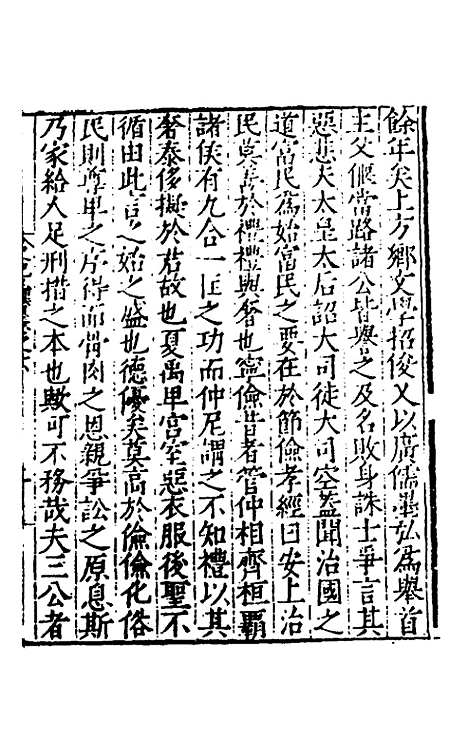 餘年矣上方鄉文學招俊乂以廣儒墨弘爲舉首
主父偃當路諸公皆譽之及名敗身誅士爭言其
惡悲夫太皇太后詔大司徒大司空蓋聞治國之
道富民爲始富民之要在於節儉孝經曰安上治
民莫善於禮禮與奢也寧儉昔者管仲相齊桓霸
諸侯有九合一匡之功而仲尼謂之不知禮以其
奢泰侈擬於君故也夏禹卑宮室惡衣服後聖不
循由此言之始之盛也德優矣莫高於儉儉化俗
民則尊卑之序得而骨肉之恩親爭訟之原息斯
乃家給人足刑措之本也歟可不務哉夫三公者